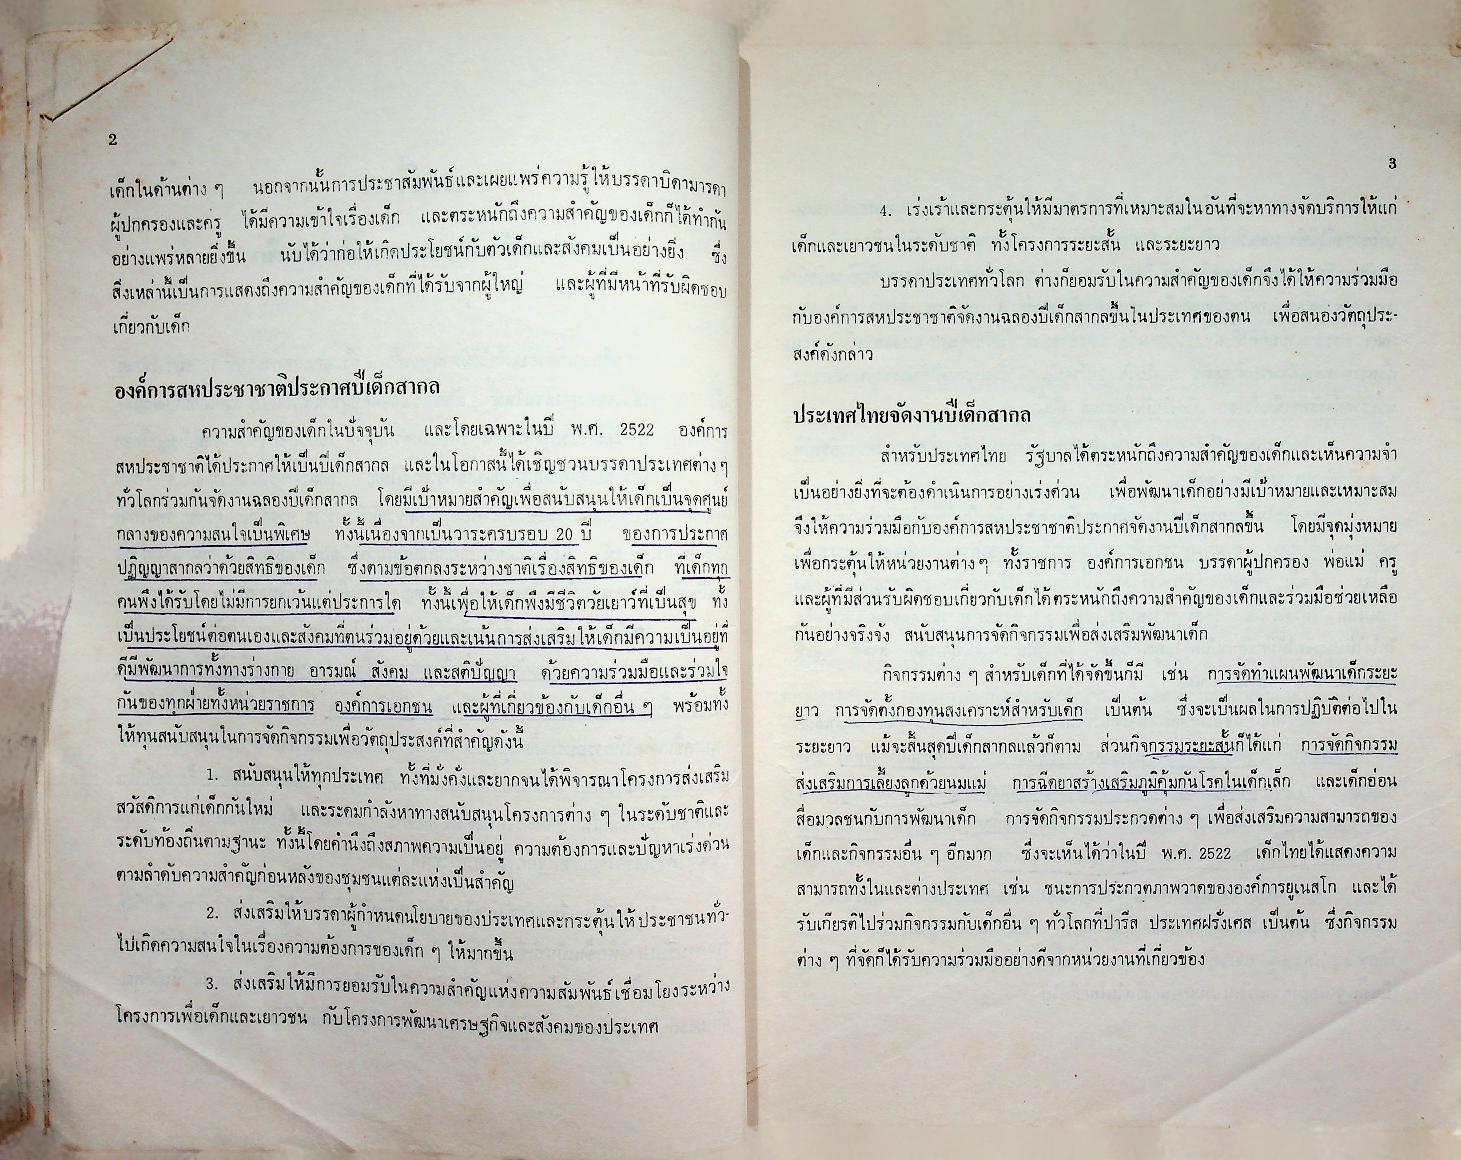 2
เด็กในด้านต่าง ๆ นอกจากนั้นการประชาสัมพันธ์และเผยแพร่ความรู้ให้บรรดาบิดามารดา
ผู้ปกครองและครู ได้มีความเข้าใจเรื่องเด็ก และตระหนักถึงความสำคัญของเด็กก็ได้ทำกัน
อย่างแพร่หลายยิ่งขึ้น นับได้ว่าก่อให้เกิดประโยชน์กับตัวเด็กและสังคมเป็นอย่างยิ่ง ซึ่ง
สิ่งเหล่านี้เป็นการแสดงถึงความสำคัญของเด็กที่ได้รับจากผู้ใหญ่ และผู้ที่มีหน้าที่รับผิดชอบ
เกี่ยวกับเด็ก
องค์การสหประชาชาติประกาศปีเด็กสากล
ความสำคัญของเด็กในปัจจุบัน และโดยเฉพาะในปี พ.ศ. 2522 องค์การ
สหประชาชาติได้ประกาศให้เป็นปีเด็กสากล และในโอกาสนี้ได้เชิญชวนบรรดาประเทศต่างๆ
ทั่วโลกร่วมกันจัดงานฉลองปีเด็กสากล โดยมีเป้าหมายสำคัญเพื่อสนับสนุนให้เด็กเป็นจุดศูนย์
กลางของความสนใจเป็นพิเศษ ทั้งนี้เนื่องจากเป็นวาระครบรอบ 20 ปี ของการประกาศ
ปฏิญญาสากลว่าด้วยสิทธิของเด็ก ซึ่งตามข้อตกลงระหว่างชาติเรื่องสิทธิของเด็ก ที่เด็กทุก
คนพึงได้รับโดยไม่มีการยกเว้นแต่ประการใด ทั้งนี้เพื่อให้เด็กพึงมีชีวิตวัยเยาว์ที่เป็นสุข ทั้ง
เป็นประโยชน์ต่อตนเองและสังคมที่ตนร่วมอยู่ด้วยและเน้นการส่งเสริมให้เด็กมีความเป็นอยู่ที่
ดีมีพัฒนาการทั้งทางร่างกาย อารมณ์ สังคม และสติปัญญา ด้วยความร่วมมือและร่วมใจ
กันของทุกฝ่ายทั้งหน่วยราชการ องค์การเอกชน และผู้ที่เกี่ยวข้องกับเด็กอื่น ๆ พร้อมทั้ง
ให้ทุนสนับสนุนในการจัดกิจกรรมเพื่อวัตถุประสงค์ที่สำคัญดังนี้
1. สนับสนุนให้ทุกประเทศ ทั้งที่มั่งคั่งและยากจนได้พิจารณาโครงการส่งเสริม
สวัสดิการแก่เด็กกันใหม่ และระดมกำลังหาทางสนับสนุนโครงการต่าง ๆ ในระดับชาติและ
ระดับท้องถิ่นตามฐานะ ทั้งนี้โดยคำนึงถึงสภาพความเป็นอยู่ ความต้องการและปัญหาเร่งด่วน
ตามลำดับความสำคัญก่อนหลังของชุมชนแต่ละแห่งเป็นสำคัญ
2. ส่งเสริมให้บรรดาผู้กำหนดนโยบายของประเทศและกระตุ้นให้ประชาชนทั่ว-
ไปเกิดความสนใจในเรื่องความต้องการของเด็ก ๆ ให้มากขึ้น
3. ส่งเสริมให้มีการยอมรับในความสำคัญแห่งความสัมพันธ์เชื่อมโยงระหว่าง
โครงการเพื่อเด็กและเยาวชน กับโครงการพัฒนาเศรษฐกิจและสังคมของประเทศ
3
4. เร่งเร้าและกระตุ้นให้มีมาตรการที่เหมาะสมในอันที่จะหาทางจัดบริการให้แก่
เด็กและเยาวชนในระดับชาติ ทั้งโครงการระยะสั้น และระยะยาว
บรรดาประเทศทั่วโลก ต่างก็ยอมรับในความสำคัญของเด็กจึงได้ให้ความร่วมมือ
กับองค์การสหประชาชาติจัดงานฉลองปีเด็กสากลขึ้นในประเทศของตน เพื่อสนองวัตถุประ-
สงค์ดังกล่าว
ประเทศไทยจัดงานปีเด็กสากล
สำหรับประเทศไทย รัฐบาลได้ตระหนักถึงความสำคัญของเด็กและเห็นความจำ
เป็นอย่างยิ่งที่จะต้องดำเนินการอย่างเร่งด่วน เพื่อพัฒนาเด็กอย่างมีเป้าหมายและเหมาะสม
จึงให้ความร่วมมือกับองค์การสหประชาชาติประกาศจัดงานปีเด็กสากลขึ้น โดยมีจุดมุ่งหมาย
เพื่อกระตุ้นให้หน่วยงานต่างๆ ทั้งราชการ องค์การเอกชน บรรดาผู้ปกครอง พ่อแม่ ครู
และผู้ที่มีส่วนรับผิดชอบเกี่ยวกับเด็กได้ตระหนักถึงความสำคัญของเด็กและร่วมมือช่วยเหลือ
กันอย่างจริงจัง สนับสนุนการจัดกิจกรรมเพื่อส่งเสริมพัฒนาเด็ก
กิจกรรมต่าง ๆ สำหรับเด็กที่ได้จัดขึ้นก็มี เช่น การจัดทำแผนพัฒนาเด็กระยะ
ยาว การจัดตั้งกองทุนสงเคราะห์สำหรับเด็ก เป็นต้น ซึ่งจะเป็นผลในการปฏิบัติต่อไปใน
ระยะยาว แม้จะสิ้นสุดปีเด็กสากลแล้วก็ตาม ส่วนกิจกรรมระยะสั้นก็ได้แก่ การจัดกิจกรรม
ส่งเสริมการเลี้ยงลูกด้วยนมแม่ การฉีดยาสร้างเสริมภูมิคุ้มกันโรคในเด็กเล็ก และเด็กอ่อน
สื่อมวลชนกับการพัฒนาเด็ก การจัดกิจกรรมประกวดต่าง ๆ เพื่อส่งเสริมความสามารถของ
เด็กและกิจกรรมอื่น ๆ อีกมาก ซึ่งจะเห็นได้ว่าในปี พ.ศ. 2522 เด็กไทยได้แสดงความ
สามารถทั้งในและต่างประเทศ เช่น ชนะการประกวดภาพวาดขององค์การยูเนสโก และได้
รับเกียรติไปร่วมกิจกรรมกับเด็กอื่น ๆ ทั่วโลกที่ปารีส ประเทศฝรั่งเศส เป็นต้น ซึ่งกิจกรรม
ต่าง ๆ ที่จัดก็ได้รับความร่วมมืออย่างดีจากหน่วยงานที่เกี่ยวข้อง